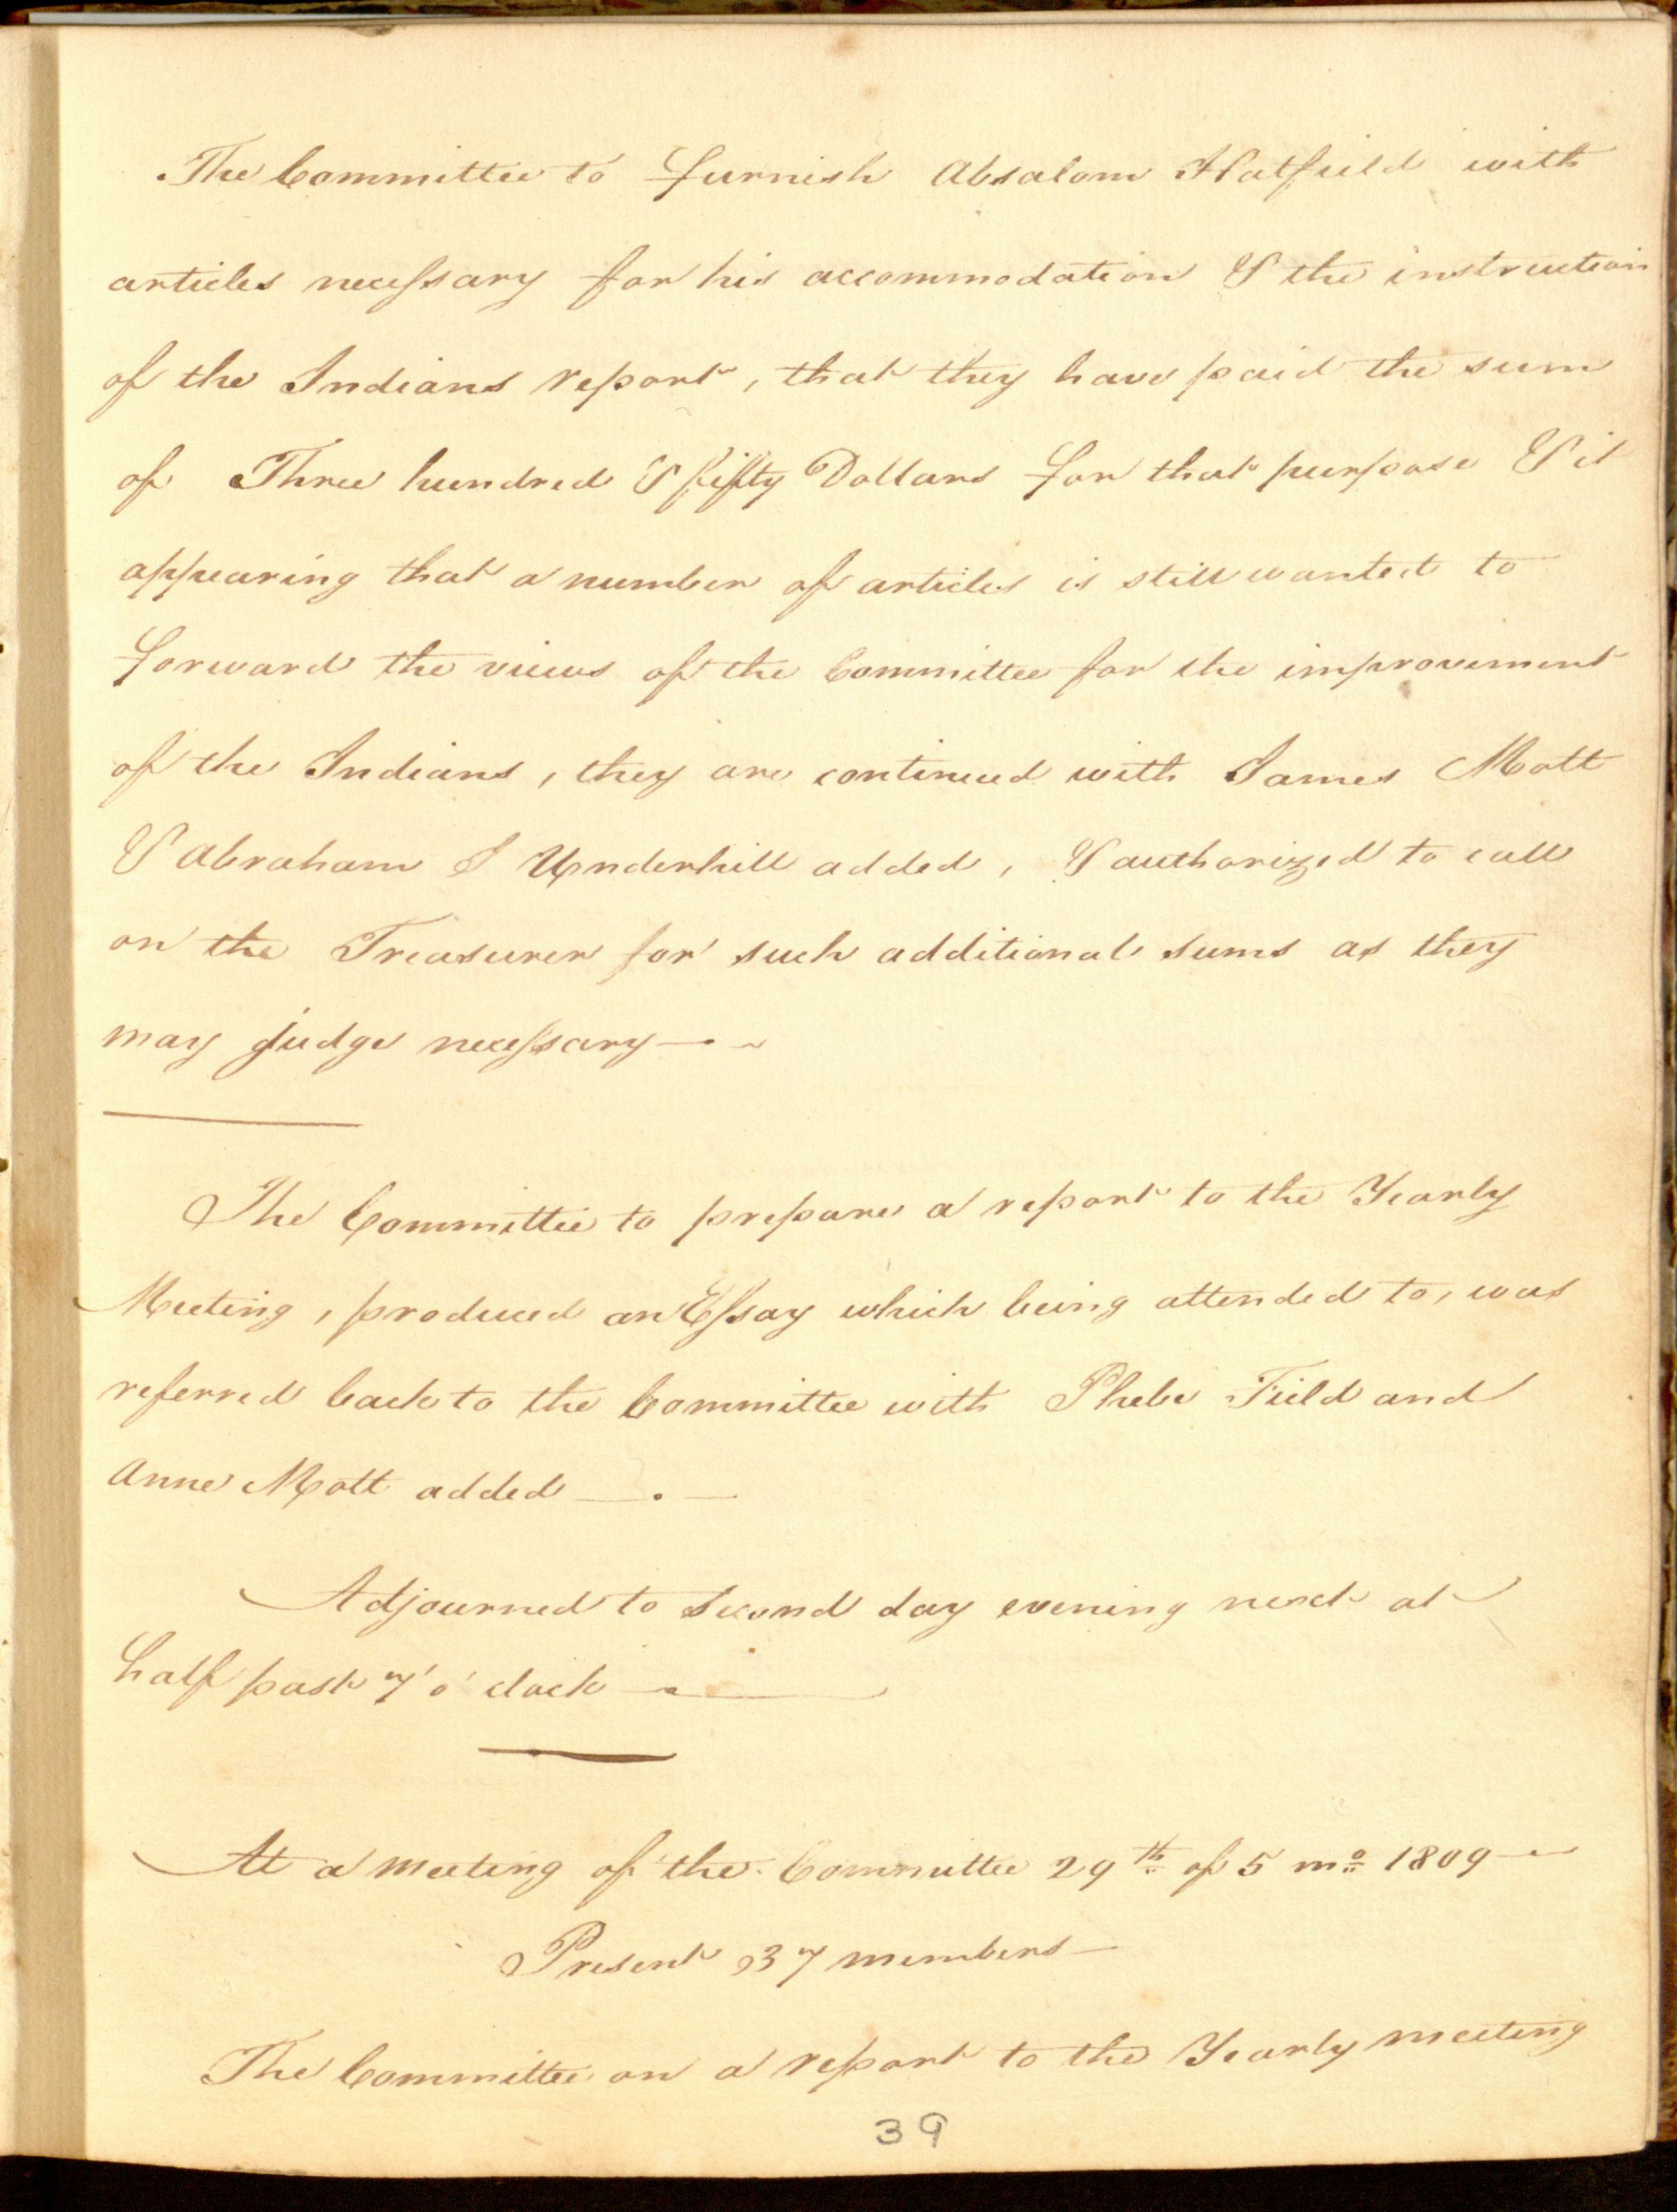 The Committee to furnish Absalom Hatfield with
articles necessary for his accommodation & the instruction
of the Indians report, that they have paid the sum
of Three hundred & fifty Dollars for that purpose & it
appearing that a number of articles is still wanted to
forward the views of the Committee for the improvement
of the Indians, they are continued with James Mott
& Abraham I Underhill added, & authorized to call
on the Treasurer for such additional sums as they
may judge necessary —
The Committee to prepare a report to the Yearly
Meeting, produced an Essay which being attended to, was
referred back to the Committee with Phebe Field and
Anne Mott added — . —
Adjourned to Second day evening next at
half past 7 o'clock —
At a meeting of the Committee 29th of 5 mo 1809 —
Present 37 members —
The Committee on a report to the Yearly meeting
39